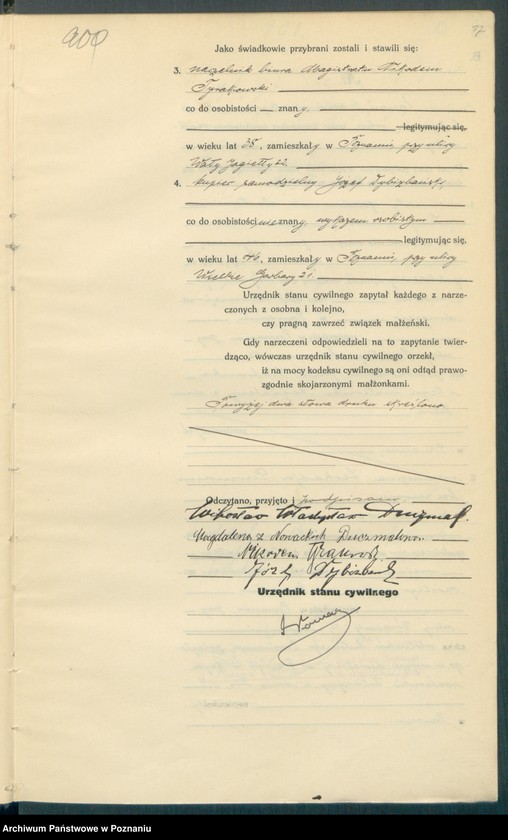 900
Jako świadkowie przybrani zostali i stawili się:
3. naczelnik biura Magistratu Nikodem
co do osobistości — znany
legitymując się,
w wieku lat 35, zamieszkały w Poznaniu przy ulicy
Wały Jagiełły 22.
4. kupiec samodzielny Józef Dybizbański
co do osobistości nieznany, wykazem osobistym
legitymując się,
w wieku lat 46, zamieszkały w Poznaniu, przy ulicy
Wielkie Garbary 21.
Urzędnik stanu cywilnego zapytał każdego z narze-
czonych z osobna i kolejno,
czy pragną zawrzeć związek małżeński.
Gdy narzeczeni odpowiedzieli na to zapytanie twier-
dząco, wówczas urzędnik stanu cywilnego orzekł,
iż na mocy kodeksu cywilnego są oni odtąd prawo-
zgodnie skojarzonymi małżonkami.
Powyżej dwa słowa druku skreślono.
Odczytano, przyjęto i podpisano
Władysław
Magdalena z Nowackich Duczmalowa.
Nikodem
Józef Dybizbański
Urzędnik stanu cywilnego
Archiwum Państwowe w Poznaniu